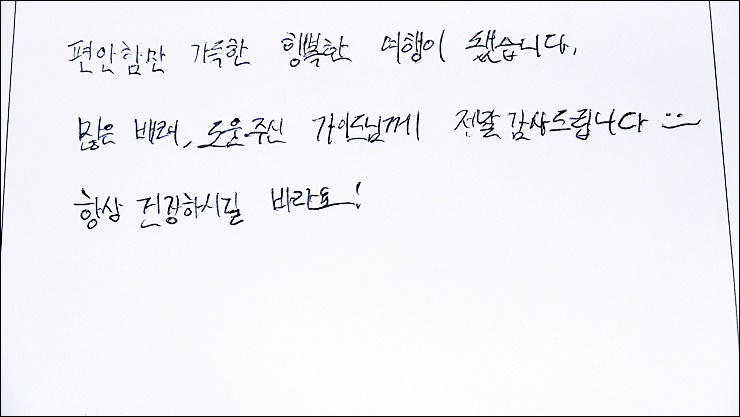 편안함만 가득한 행복한 여행이 됐습니다.
많은 배려, 도움주신 가이드님께 정말 감사드립니다
항상 건강하시길 바라요!